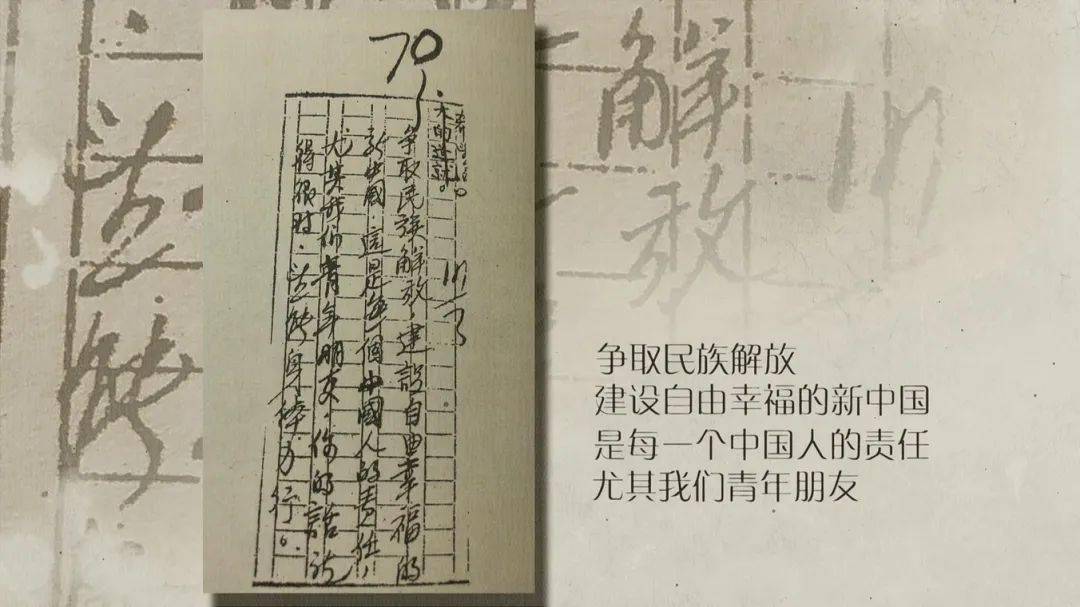 70
大的迷誤。
争取民族解放，建設自由幸福的
新中國，這是每一個中國人的责任，
尤其我们青年朋友，你的話説
得很对，並能身体力行。
争取民族解放
建设自由幸福的新中国
是每一个中国人的责任
尤其我们青年朋友
解放